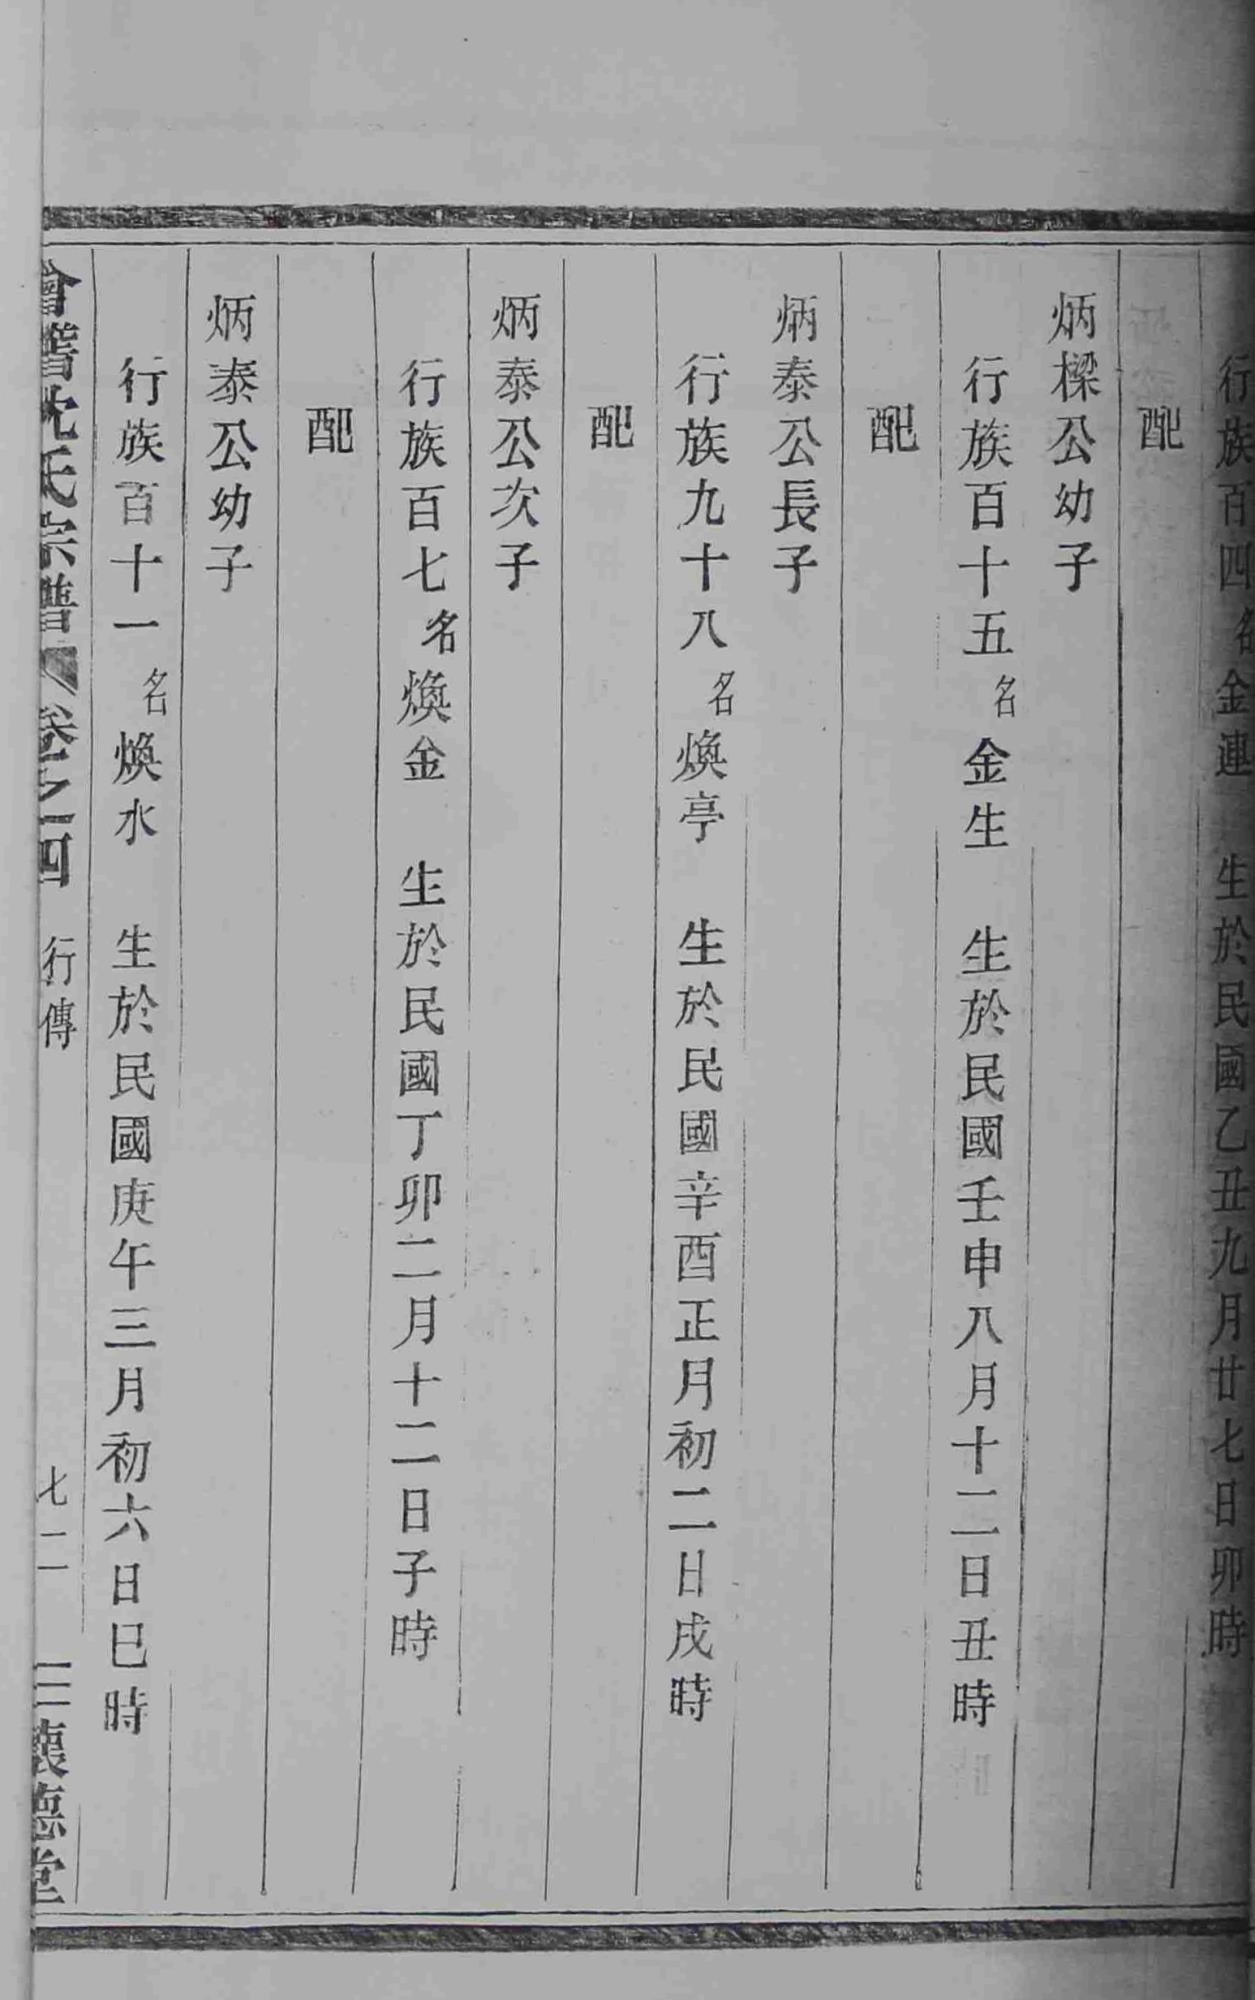 行族百四名金連　生於民國乙丑九月廿七日卯時
配
炳樑公幼子
行族百十五名金生　生於民國壬申八月十二日丑時
配
炳泰公長子
行族九十八名煥亭　生於民國辛酉正月初二日戌時
配
炳泰公次子
行族百七名煥金　生於民國丁卯二月十二日子時
配
炳泰公幼子
行族百十一名煥水　生於民國庚午三月初六日巳時
會稽沈氏宗譜　卷之四　行傳　七二　懷德堂